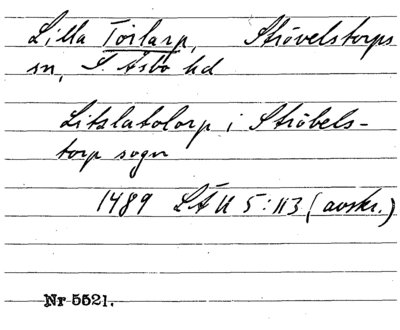 Lilla Torlarp, Strövelstorps
sn, S. Åsbo hd
Litzlatolorp i Ströbels-
torp sogn
1489 LÅU 5:113 (avskr.)
Nr 5521.